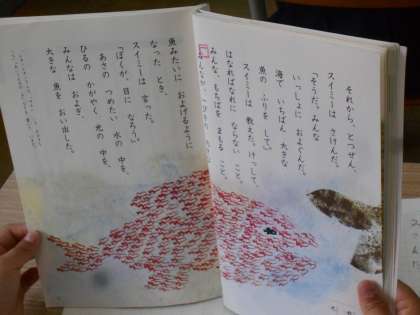 それから、とつぜん、
スイミーは さけんだ。
「そうだ。みんな
いっしょに およぐんだ。
海で いちばん 大きな
魚の ふりを して。」
スイミーは 教えた。けっして、
はなればなれに ならない こと。
みんな、もちばを まもる こと。
魚みたいに およげるように
なった とき、
スイミーは 言った。
「ぼくが、目に なろう。」
あさの つめたい 水の 中を、
ひるの かがやく 光の 中を、
みんなは およぎ、
大きな 魚を おい出した。